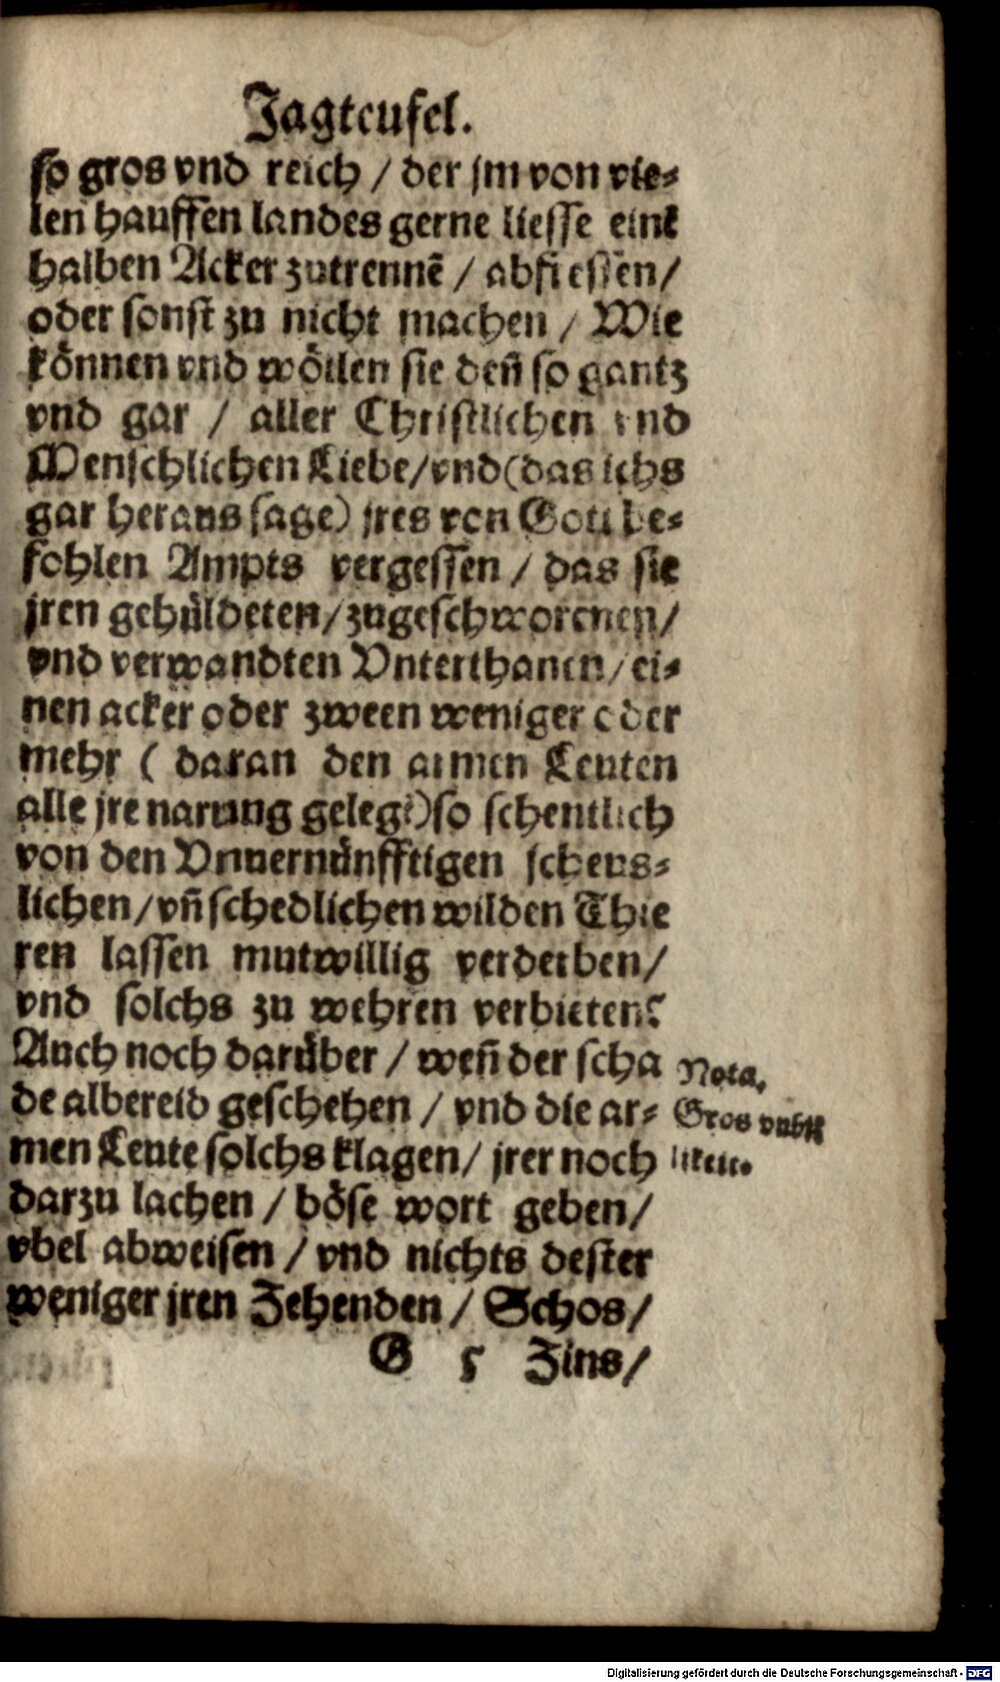 Jagteufel.
so gros vnd reich / der jm von vie-
len hauffen landes gerne liesse einē
halben Acker zutrennē / abfressen /
oder sonst zu nicht machen / Wie
können vnd wöllen sie deñ so gantz
vnd gar / aller Christlichen vnd
Menschlichen Liebe / vnd (das ichs
gar heraus sage) jres von Gott be-
fohlen Ampts vergessen / das sie
jren gehüldeten / zugeschworenen /
vnd verwandten Vnterthanen / ei-
nen acker oder zween weniger oder
mehr ( daran den armen Leuten
alle jre narung gelegē) so schentlich
von den Vnuernünfftigen scheus-
lichen / vñ schedlichen wilden Thie
ren lassen mutwillig verderben /
vnd solchs zu wehren verbieten?
Auch noch darüber / weñ der scha
de albereid geschehen / vnd die ar-
men Leute solchs klagen / jrer noch
darzu lachen / böse wort geben /
vbel abweisen / vnd nichts dester
weniger jren Zehenden / Schos /
G 5 Zins /
Nota.
Gros vnbil
ligkeit.
Digitalisierung gefördert durch die Deutsche Forschungsgemeinschaft - DFG